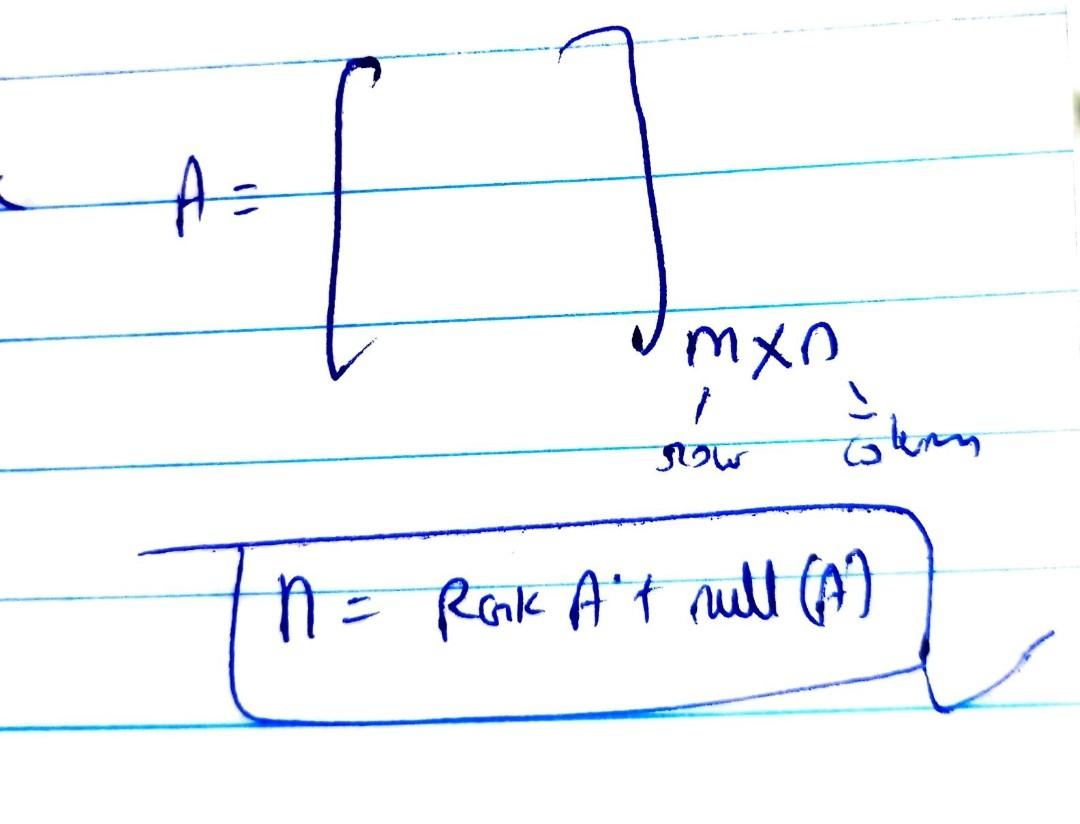 A = [ ] m×n
row column
n = Rank A + null (A)